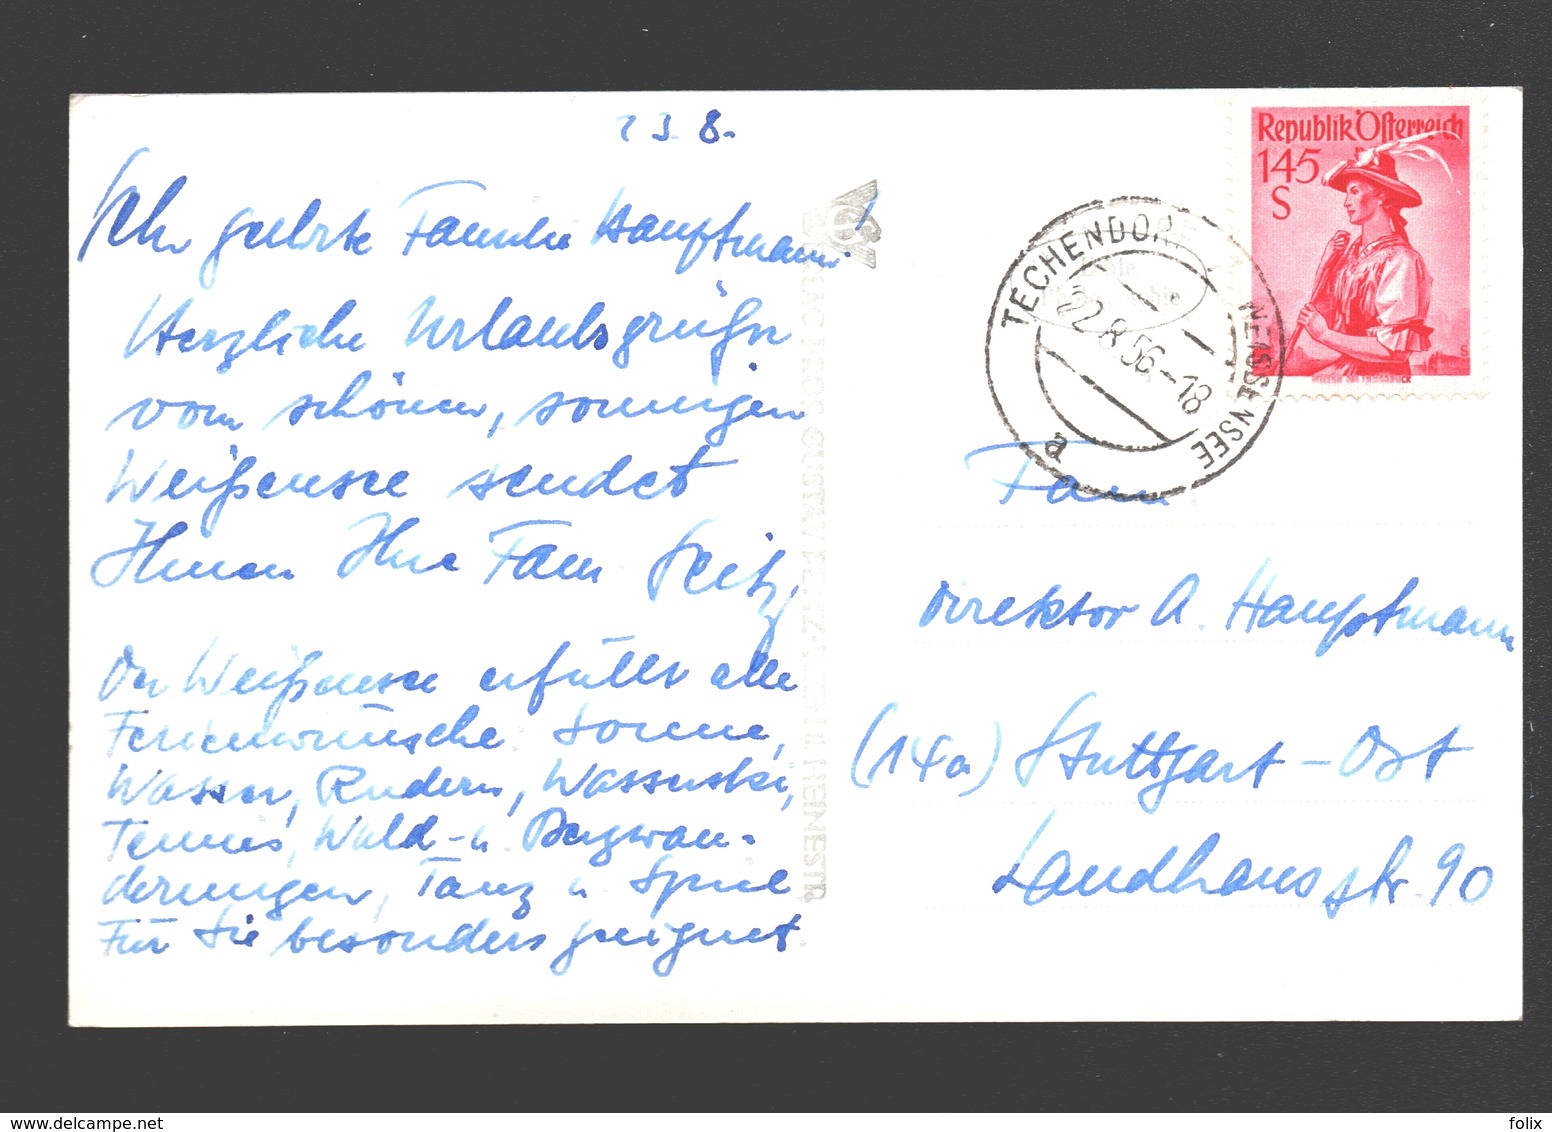 23.8.
Sehr geehrte Familie Hauptmann!
Herzliche Urlaubsgrüße
vom schönen, sonnigen
Weißensee sendet
Ihnen Ihre Fam Seitz
Der Weißensee erfüllt alle
Ferienwünsche Sonne,
Wasser, Rudern, Wasserski,
Tennis, Wald- u Bergwan-
derungen, Tanz u Spiel
Für Sie besonders geeignet
GUSTAV
HEINESTR.
Republik Österreich
145
S
TECHENDORF
WEISSENSEE
22.8.56-18
a
Fam.
Direktor A. Hauptmann
(14a) Stuttgart-Ost
Landhausstr. 90
www.delcampe.net
folix